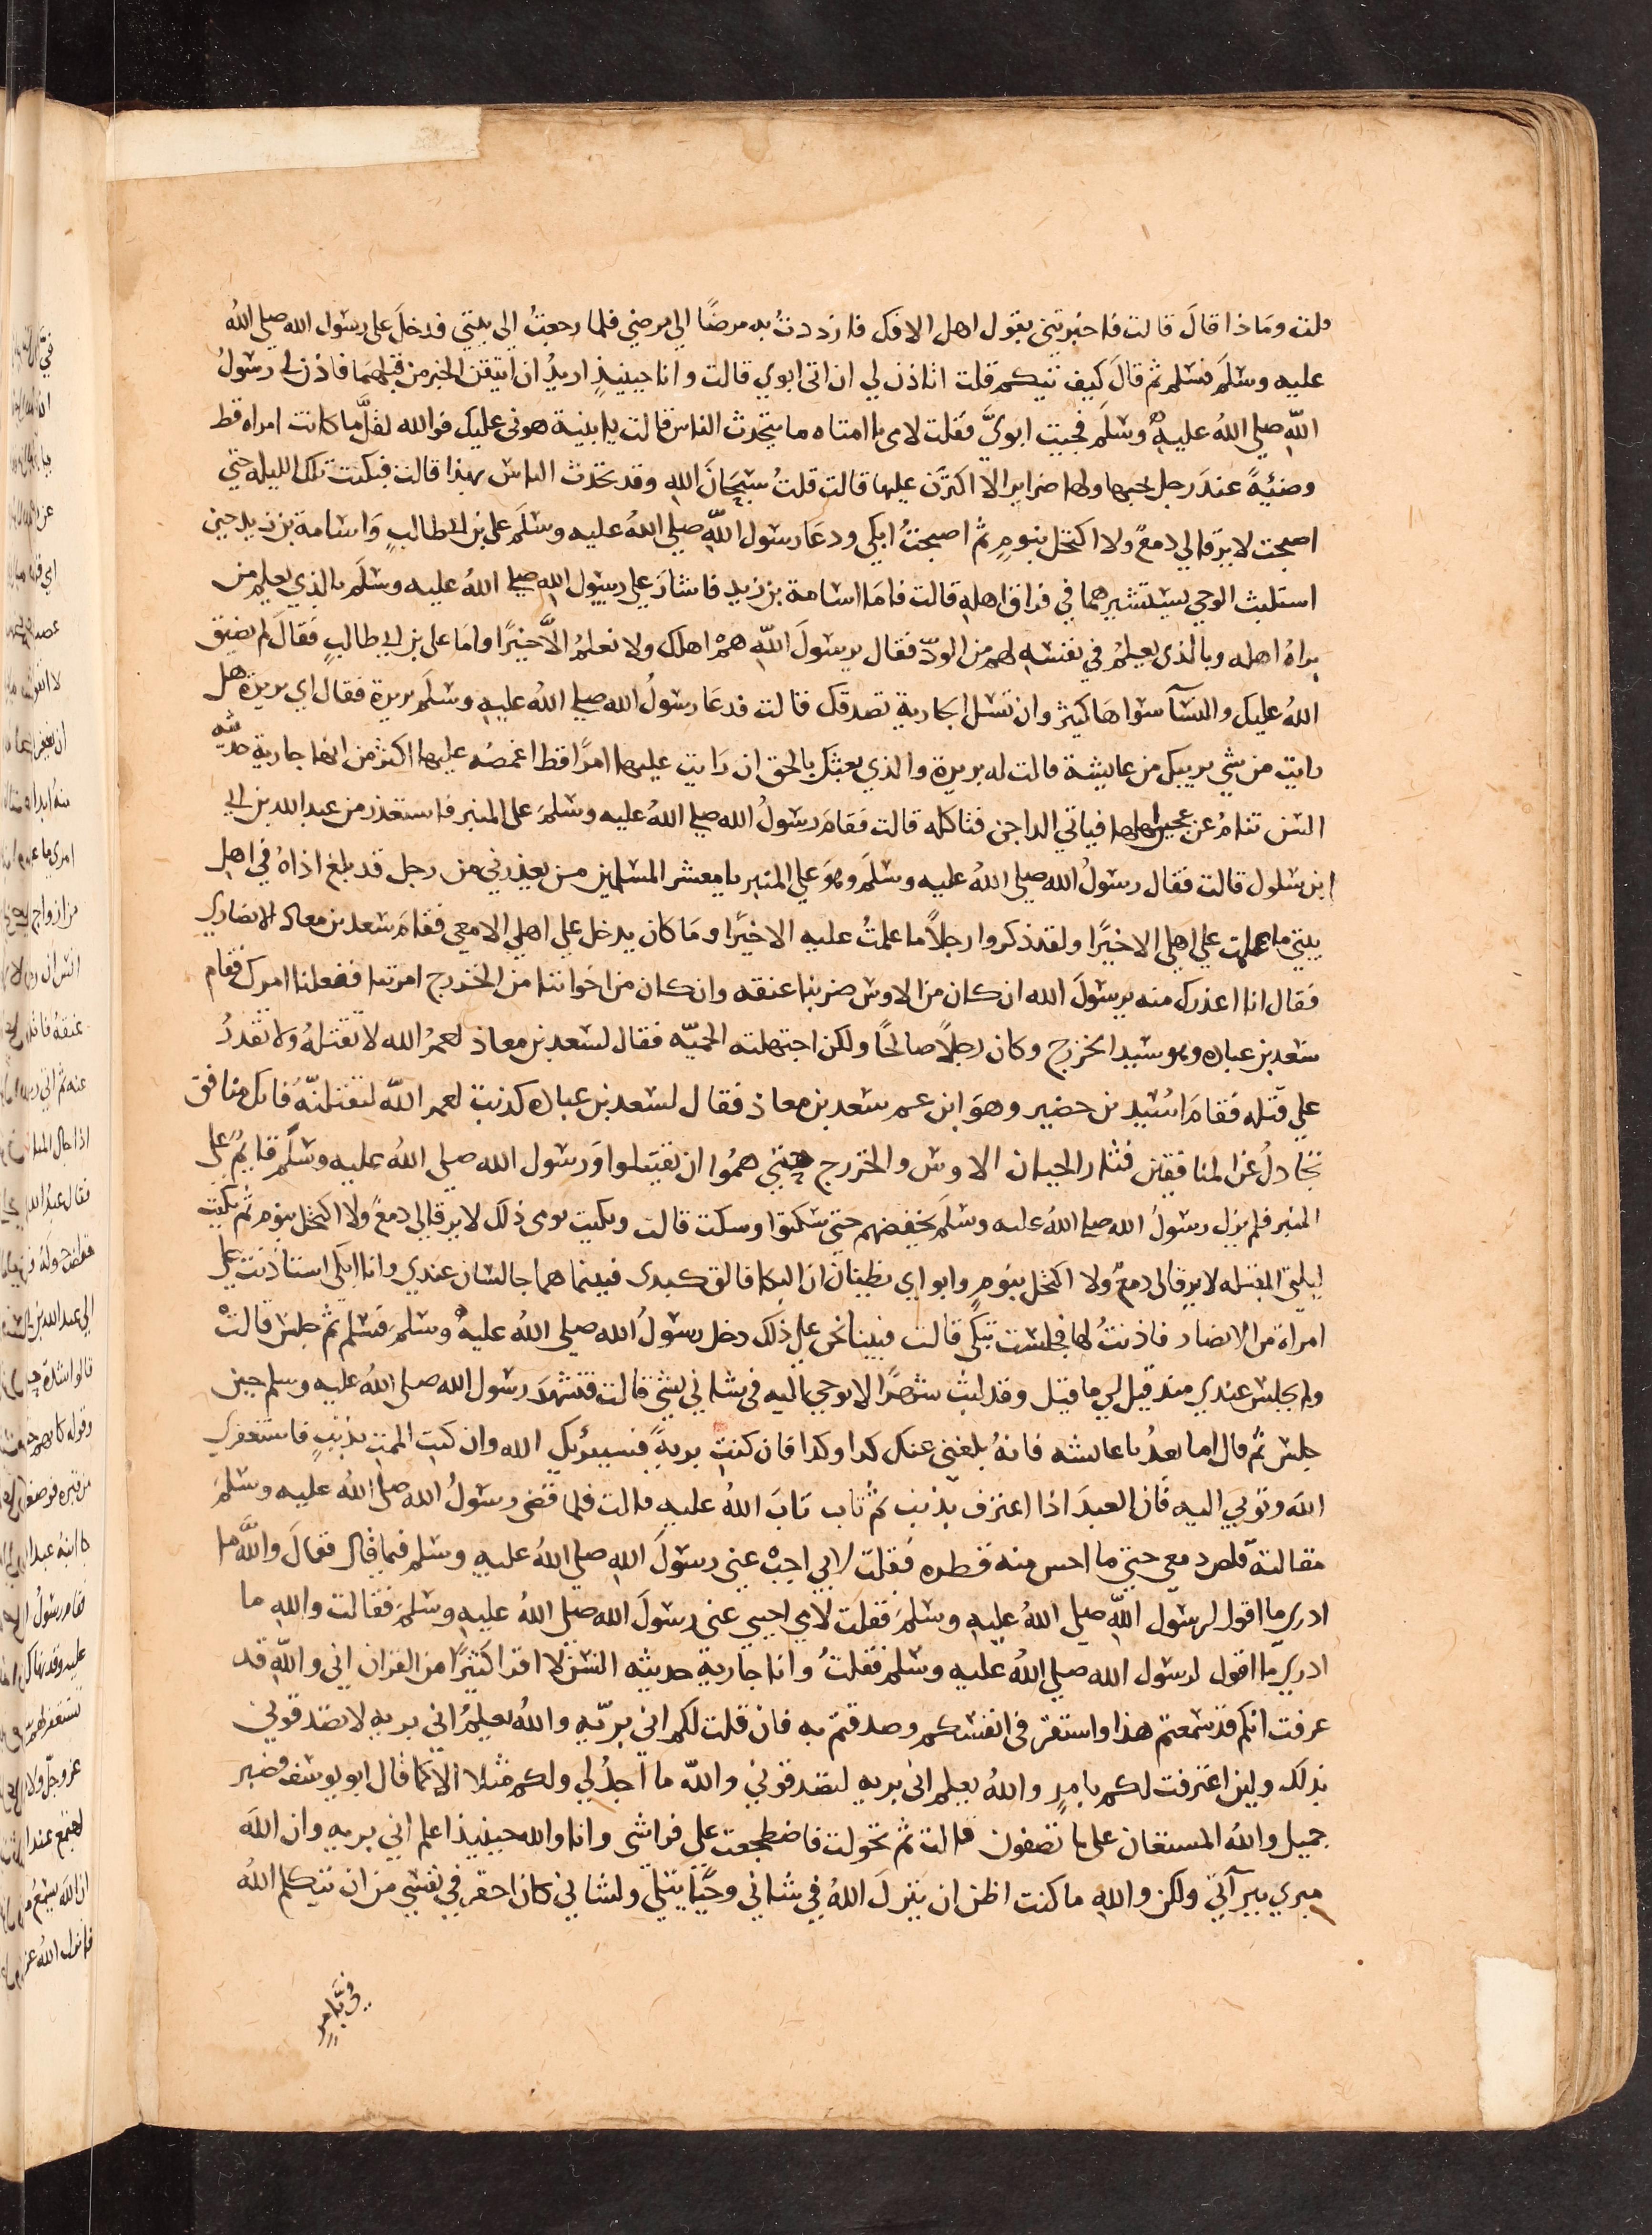 قلت وماذا قال قالت فاخبرتني بقول اهل الافك فازددت به مرضًا الي مرضي فلما رجعتُ الى بيتي فدخل على رسول الله صلى اللهُ
عليه وسلم فسلم ثم قال كيف تيكم قلت اتاذن لي ان اتى ابوي قالت وانا حينيذٍ اريدُ ان اتيقن الخبر من قبلهما فاذن لي رسولُ
الله صلي اللهُ عليه وسلم فجيت ابويَّ فقلت لامى يا امتاه ما يتحدث الناس قالت يا بنية هونى عليك فوالله لقلّما كانت امراه قط
وضئيةً عند رجل يحبها ولها ضراير الا اكثرن عليها قالت قلتُ سبحان الله وقد تحدث الناس بهذا قالت فبكيت تلك الليله حتي
اصبحت لا يرقا لي دمعٌ ولا اكتحل بنومٍ ثم اصبحتُ ابكي ودعا رسول اللّه صلي اللهُ عليه وسلم على بن ابي طالبٍ واسامة بن زيد حين
استلبث الوحي يستشيرهما في فراق اهله قالت فاما اسامة بن زيد فاشار علي رسول الله صلي اللهُ عليه وسلم بالذي يعلم من
براة اهله وبالذي يعلمُ في نفسه لهم من الودّ فقال يرسول اللّه همْ اهلك ولا نعلمُ الاَّ خيرًا واما على بن ابي طالبٍ فقال لم يضيق
اللهُ عليك والنسآ سواها كثيرٌ وان تسل الجارية تصدقك قالت فدعا رسولُ الله صلي اللهُ عليه وسلم بريرة فقال اي بريرة هل
رايت من شي يريبك من عايشة قالت له بريرة والذي بعثك بالحق ان رايت عليها امرًا قط اغمصُه عليها اكثر من انها جارية حديثه
السن تنامُ عن عجين اهلها فياتي الداجن فتاكله قالت فقام رسولُ الله صلي اللهُ عليه وسلم على المنبر فاستعذر من عبد الله بن ابي
ابن سلول قالت فقال رسولُ الله صلى اللهُ عليه وسلم وهو علي المنبر يا معشر المسلمين من يعذرني من رجل قد بلغ اذاهُ في اهل
بيتي ما علمت علي اهلي الا خيرًا ولقد ذكروا رجلاً ما علمتُ عليه الا خيرًا وما كان يدخل علي اهلي الا معي فقام سعد بن معاذ الانصاري
فقال انا اعذرك منه يرسول الله ان كان من الاوس ضربنا عنقه وان كان من اخواننا من الخزرج امرتنا ففعلنا امرك فقام
سعد بن عباده وهو سيد الخزرج وكان رجلاً صالحًا ولكن اجتهلته الحميّه فقال لسعد بن معاذ لعمرُ الله لا تقتلهُ ولا تقدرُ
علي قتله فقام اسُيد بن حضير وهو ابن عم سعد بن معاذ فقال لسعد بن عباده كذبت لعمر اللّه لنقتلنّهُ فانك منافق
تجادلُ عن المنافقين فثار الحيان الاوس والخزرج حتي همُوا ان يقتتلوا ورسول الله صلي اللهُ عليه وسلّم قايمٌ علي
المنبر فلم يزل رسولُ الله صلى اللهُ عليه وسلم يخفضهم حتي سكتوا وسكت قالت وبكيت يومى ذلك لا يرقا لي دمعٌ ولا اكتحل بنوم ثم بكيت
ليلتي المقبله لا يرقا لي دمعٌ ولا اكتحل بنومٍ وابواي يظنان ان البكا فالق كبدى فبينما هما جالسان عندي وانا ابكي استاذنت علي
امراة من الانصار فاذنتُ لها فجلست تبكي قالت فبينا نحن علي ذلك دخل رسولُ الله صلي اللهُ عليه وسلم فسلم ثم جلس قالتْ
ولم يجلس عندي منذ قيل لي ما قيل وقد لبث شهرًا لا يوحي اليه في شاني بشي قالت فتشهد رسول الله صلى اللهُ عليه وسلم حين
جلس ثم قال اما بعدُ يا عايشه فانهُ بلغني عنك كدا وكدا فان كنتِ بريةً فسيبرّئيك الله وان كنت الممت بذنبٍ فاستغفري
الله وتوبي اليه فان العبد اذا اعترف بذنب ثم تاب تاب اللهُ عليه قالت فلما قضي رسولُ الله صلى اللهُ عليه وسلم
مقالتهُ قلص دمعى حتي ما احس منه قطره فقلت لابي اجبْ عني رسول الله صلي اللهُ عليه وسلم فيما قال فقال واللّه ما
ادري ما اقول لرسول اللّه صلي اللهُ عليه وسلم فقلت لامي اجيبي عني رسول الله صلي اللهُ عليه وسلم فقالت والله ما
ادري ما اقول لرسول الله صلي اللهُ عليه وسلم فقلتُ وانا جارية حديثه السن لا اقرا كثيرًا من القران اني واللّه قد
عرفت انكم قد سمعتم هذا واستقر في انفسكم وصدقتم به فان قلت لكم اني بريّه واللهُ يعلمُ اني بريه لا تصدقوني
بذلك ولين اعترفت لكم بامرٍ واللهُ يعلم اني بريه لتصدقوني واللّه ما اجدُ لي ولكم مثلا الاّ كما قال ابو يوسف فصبر
جميل واللهُ المستعان على ما تصفون قالت ثم تحولت فاضطجعت علي فراشي وانا والله حينيذ اعلم اني بريه وان الله
مبري ببرآتي ولكن والله ما كنت اظن ان ينزل اللهُ في شاني وحيًا يتلي ولشاني كان احقر في نفسي من ان يتكلم اللهُ
فيّ بامرٍ